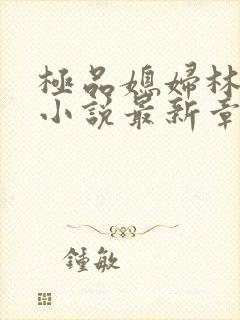 極品媳婦林
小說最新章
鍾敏